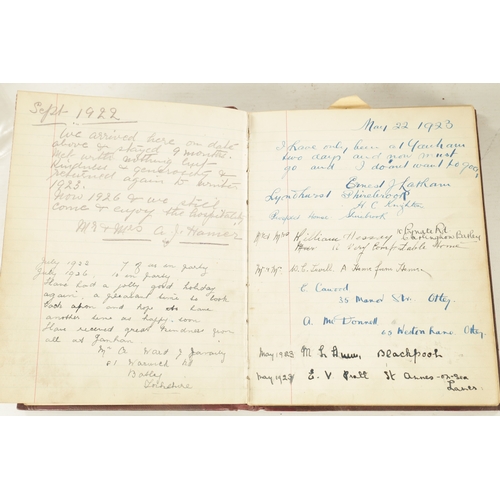 Sept 1922
We arrived here on date
above & stayed 9 months.
with nothing but
kindness & generosity &
returned again to
1923.
Now 1926 & we still
come & enjoy the hospitality
Mr & Mrs A. J. Hamer
July 1922 7 of us in party
July 1926 10 in party
Have had a jolly good holiday
again, a pleasant time to look
back upon and hope to have
another time as happy soon
Have received great kindness from
all at
Ward
51 Warwick Rd
Batley
Yorkshire
May 22 1923
I have only been at
two days and now must
go and I don't want to go.
Ernest J. Latham
Lyndhurst Shirebrook
H. C.
House
Mr & Mrs William
A Very Comfortable Home
Mr & Mrs W. E. A Home from Home.
E Cawood
35 Manor St. Otley.
A McDonnell
Weston Lane Otley.
May 1923 M. L. Blackpool
May 1923 E. V. Pratt St Annes-on-Sea
Lancs.